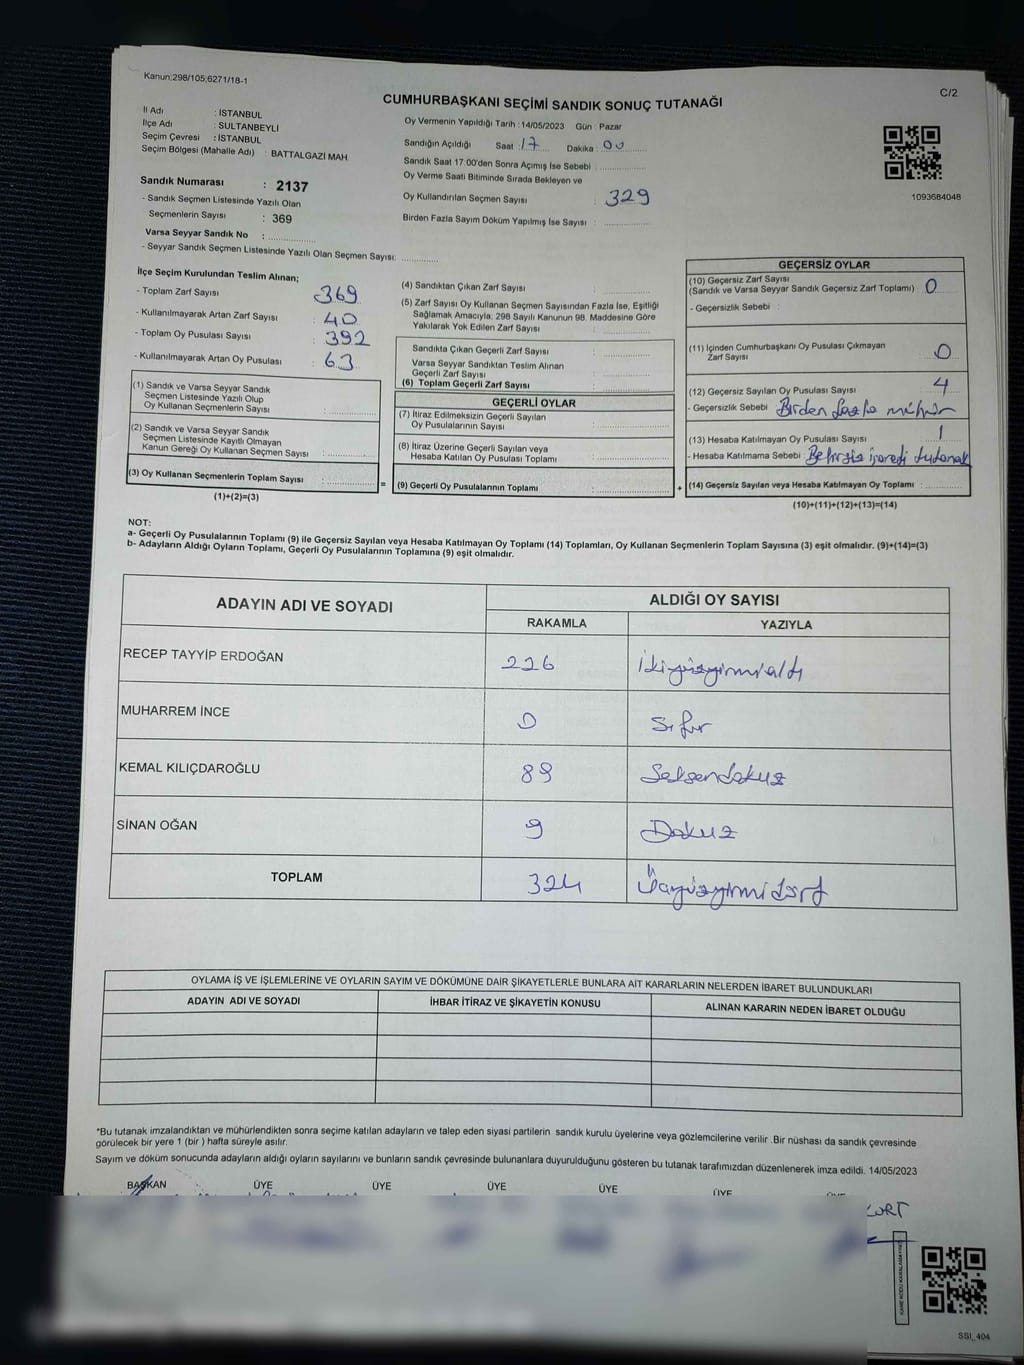 Kanun:298/105;6271/18-1
C/2
CUMHURBAŞKANI SEÇİMİ SANDIK SONUÇ TUTANAĞI
İl Adı : İSTANBUL
İlçe Adı : SULTANBEYLİ
Seçim Çevresi : İSTANBUL
Seçim Bölgesi (Mahalle Adı) : BATTALGAZİ MAH.
Oy Vermenin Yapıldığı Tarih :14/05/2023 Gün : Pazar
Sandığın Açıldığı Saat : 17 Dakika : 00
Sandık Saat 17:00'den Sonra Açımış İse Sebebi :
Oy Verme Saati Bitiminde Sırada Bekleyen ve
Oy Kullandırılan Seçmen Sayısı : 329
Birden Fazla Sayım Döküm Yapılmış İse Sayısı :
1093684048
Sandık Numarası : 2137
- Sandık Seçmen Listesinde Yazılı Olan
Seçmenlerin Sayısı : 369
Varsa Seyyar Sandık No :
- Seyyar Sandık Seçmen Listesinde Yazılı Olan Seçmen Sayısı:
İlçe Seçim Kurulundan Teslim Alınan;
- Toplam Zarf Sayısı : 369
- Kullanılmayarak Artan Zarf Sayısı : 40
- Toplam Oy Pusulası Sayısı : 392
- Kullanılmayarak Artan Oy Pusulası : 63
(1) Sandık ve Varsa Seyyar Sandık
Seçmen Listesinde Yazılı Olup
Oy Kullanan Seçmenlerin Sayısı :
(2) Sandık ve Varsa Seyyar Sandık
Seçmen Listesinde Kayıtlı Olmayan
Kanun Gereği Oy Kullanan Seçmen Sayısı :
(3) Oy Kullanan Seçmenlerin Toplam Sayısı :
(1)+(2)=(3)
=
(4) Sandıktan Çıkan Zarf Sayısı :
(5) Zarf Sayısı Oy Kullanan Seçmen Sayısından Fazla İse, Eşitliği
Sağlamak Amacıyla; 298 Sayılı Kanunun 98. Maddesine Göre
Yakılarak Yok Edilen Zarf Sayısı :
Sandıkta Çıkan Geçerli Zarf Sayısı :
Varsa Seyyar Sandıktan Teslim Alınan
Geçerli Zarf Sayısı :
(6) Toplam Geçerli Zarf Sayısı :
GEÇERLİ OYLAR
(7) İtiraz Edilmeksizin Geçerli Sayılan
Oy Pusulalarının Sayısı :
(8) İtiraz Üzerine Geçerli Sayılan veya
Hesaba Katılan Oy Pusulası Toplamı :
(9) Geçerli Oy Pusulalarının Toplamı :
+
GEÇERSİZ OYLAR
(10) Geçersiz Zarf Sayısı
(Sandık ve Varsa Seyyar Sandık Geçersiz Zarf Toplamı) : 0
- Geçersizlik Sebebi :
(11) İçinden Cumhurbaşkanı Oy Pusulası Çıkmayan
Zarf Sayısı : 0
(12) Geçersiz Sayılan Oy Pusulası Sayısı : 4
- Geçersizlik Sebebi : Birden fazla mühür
(13) Hesaba Katılmayan Oy Pusulası Sayısı : 1
- Hesaba Katılmama Sebebi : Belirsiz işareti tutanak
(14) Geçersiz Sayılan veya Hesaba Katılmayan Oy Toplamı :
(10)+(11)+(12)+(13)=(14)
NOT:
a- Geçerli Oy Pusulalarının Toplamı (9) ile Geçersiz Sayılan veya Hesaba Katılmayan Oy Toplamı (14) Toplamları, Oy Kullanan Seçmenlerin Toplam Sayısına (3) eşit olmalıdır. (9)+(14)=(3)
b- Adayların Aldığı Oyların Toplamı, Geçerli Oy Pusulalarının Toplamına (9) eşit olmalıdır.
ADAYIN ADI VE SOYADI
ALDIĞI OY SAYISI
RAKAMLA YAZIYLA
RECEP TAYYİP ERDOĞAN 226 ikiyüzyirmialtı
MUHARREM İNCE 0 sıfır
KEMAL KILIÇDAROĞLU 89 Seksendokuz
SİNAN OĞAN 9 Dokuz
TOPLAM 324 Üçyüzyirmidört
OYLAMA İŞ VE İŞLEMLERİNE VE OYLARIN SAYIM VE DÖKÜMÜNE DAİR ŞİKAYETLERLE BUNLARA AİT KARARLARIN NELERDEN İBARET BULUNDUKLARI
ADAYIN ADI VE SOYADI İHBAR İTİRAZ VE ŞİKAYETİN KONUSU ALINAN KARARIN NEDEN İBARET OLDUĞU
*Bu tutanak imzalandıktan ve mühürlendikten sonra seçime katılan adayların ve talep eden siyasi partilerin sandık kurulu üyelerine veya gözlemcilerine verilir .Bir nüshası da sandık çevresinde
görülecek bir yere 1 (bir ) hafta süreyle asılır.
Sayım ve döküm sonucunda adayların aldığı oyların sayılarını ve bunların sandık çevresinde bulunanlara duyurulduğunu gösteren bu tutanak tarafımızdan düzenlenerek imza edildi. 14/05/2023
BAŞKAN ÜYE ÜYE ÜYE ÜYE ÜYE ÜYE
KURT
SSI_404